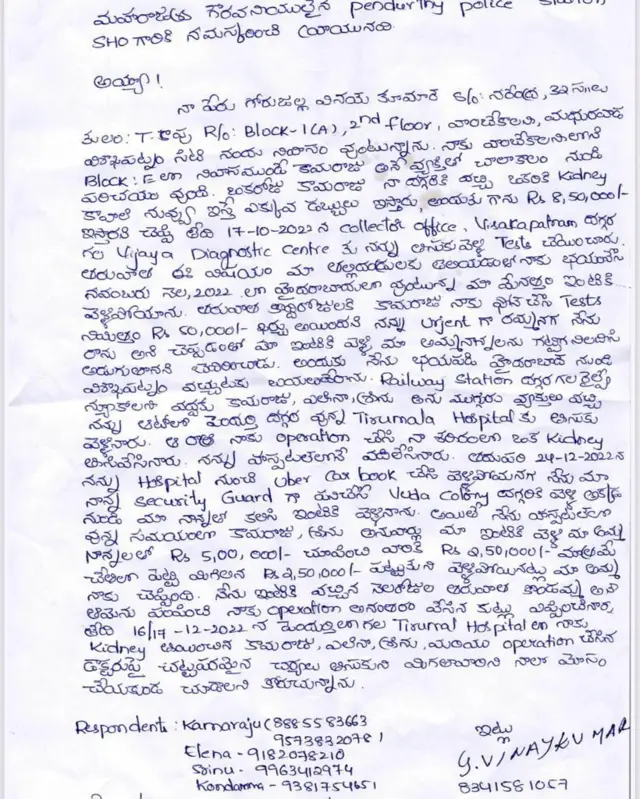 మహారాజశ్రీ గౌరవనీయులైన pendurthy police station,
SHO గారికి నమస్కరించి వ్రాయునది.
అయ్యా!
నా పేరు గోరుజల్ల వినయ్ కూమార్ S/o: నరేంద్ర, 32 సం॥లు
కులం: T. కాపు R/o: Block-1(A), 2nd floor, వాంబేకాలనీ, మధురవాడ
విశాఖపట్నం సిటి నందు నివాసం వుంటున్నాను. నాకు వాంబేకాలనీలోని
Block: E లో నివాసముండే కామరాజు అనే వ్యక్తితో చాలాకాలం నుండి
పరిచయం వుంది. ఒకరోజు కామరాజు నా దగ్గరికి వచ్చి ఒకరికి Kidney
కావాలి నువ్వు ఇస్తే ఎక్కువ డబ్బులు ఇస్తారు, అందుకు గాను Rs 8,50,000/-
ఇస్తారని చెప్పి తేది 17-10-2022 న collector office, Visakapatnam దగ్గర
గల Vijaya Diagnostic Centre కు నన్ను తీసుకువెళ్లి Tests చేయించారు.
తరువాత ఈ విషయం మా తల్లిదండ్రులకు తెలియడంతో నాకు భయంవేసి
నవంబరు నెల, 2022 లో హైదరాబాదులో వుంటున్న మా మేనత్త ఇంటికి
వెళ్లిపోయాను. తరువాత కొన్నిరోజులకి కామరాజు నాకు ఫోన్ చేసి Tests
నిమిత్తం Rs 50,000/- ఖర్చు అయిందని నన్ను Urjent గా రమ్మనగ నేను
రాను అని చెప్పడంతో మా ఇంటికి వెళ్లి మా అమ్మనాన్నలను గట్టిగ నిలదీసి
అడుగుతానని బెదిరించాడు. అందుకు నేను భయపడి హైదరాబాద్ నుండి
విశాఖపట్నం వచ్చుటకు బయలుదేరాను. Railway Station దగ్గర గల రైల్వే
న్యూకాలనీ వద్దకు కామరాజు, ఎలినా, శ్రీను అను ముగ్గురు వ్యక్తులు వచ్చి
నన్ను ఆటోలో పెందుర్తి దగ్గర వున్న Tirumala Hospital కు తీసుకు
వెళ్లినారు. ఆ రాత్రి నాకు operation చేసి నా శరీరంలో ఒక Kidney
తీసివేసినారు. నన్ను హాస్పటల్‌లోనే వదిలేసినారు. తదుపరి 24-12-2022 న
నన్ను Hospital నుంచి Uber Car book చేసి వెళ్లిపోమనగ నేను మా
నాన్న Security Guard గా పనిచేసే Vuda Colony దగ్గరికి వెళ్లి అక్కడ
నుండి మా నాన్నతో కలిసి ఇంటికి వెళ్లినాను. అయితే నేను హాస్పటల్‌లో
వున్న సమయంలో కామరాజు, శ్రీను అనువార్లు మా ఇంటికి వెళ్లి మా అమ్మ
నాన్నలలో Rs 5,00,000/- చూపించి వారికి Rs 2,50,000/- మాత్రమే
చేతిలో పెట్టి మిగిలిన Rs 2,50,000/- పట్టుకుని వెళ్లిపోయినట్లు మా అమ్మ
నాకు చెప్పింది. నేను ఇంటికి వచ్చిన నెలరోజుల తరువాత కొండమ్మ అనే
ఆమెను పంపించి నాకు operation అనంతరం వేసిన కుట్లు విప్పించినారు,
తేది 16/17-12-2022 న పెందుర్తిలో గల Tirumal Hospital లో నాకు
Kidney తీయించిన కామరాజు, ఎలినా, శ్రీను, మరియు operation చేసిన
డాక్టరుపై చట్టపరమైన చర్యలు తీసుకుని మిగలవారిని నాలా మోసం
చేయకుండ చూడాలని కోరుచున్నాను.
Respondent: Kamaraju (8885583663
9573832078)
Elena - 9182078210
Srinu - 9963412974
Kondamma - 9381754651
ఇట్లు
G. VINAY KUMAR
8341581057